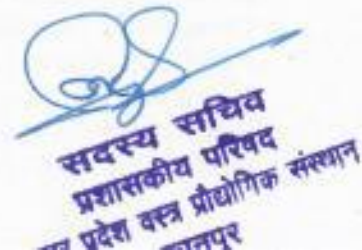 सदस्य सचिव
प्रशासकीय परिषद
प्रदेश वस्त्र प्रौद्योगिक संस्थान
कानपुर